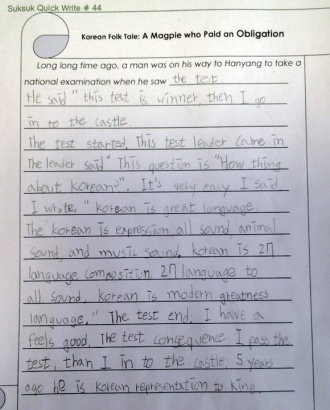 Suksuk Quick Write # 44
Korean Folk Tale: A Magpie who Paid an Obligation
Long long time ago, a man was on his way to Hanyang to take a
national examination when he saw the test
He said "this test is winner, then I go
in to the castle
The test started. This test leader came in
The leader said" This question is "How thing
about korean"". It's very easy I said
I wrote. " korean is great language.
The korean is expression all sound, animal
sound, and music sound, korean is 27
language composition. 27 language to
all sound, korean is modern greatness
language." The test end, I have a
feels good. The test consequence I pass the
test, than I in to the castle. 5 years
ago he is korean representation to king